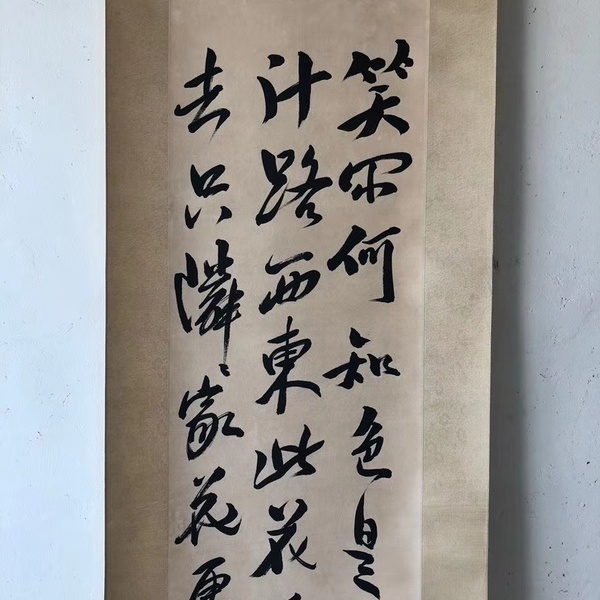 笑何知色是
計路西東此花
去只隣家花更